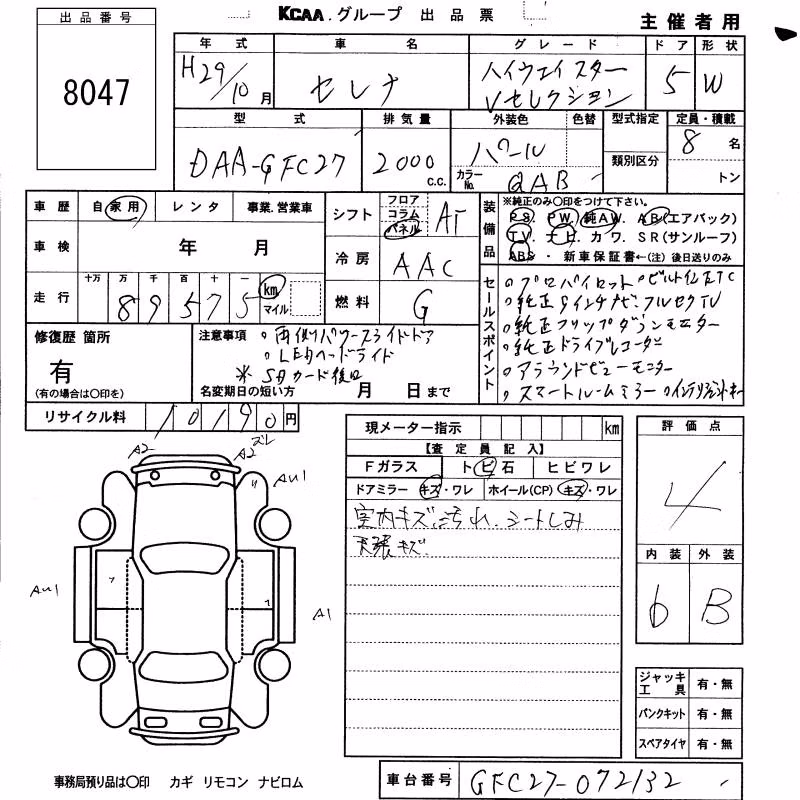 出品番号
8047
KCAA.グループ 出品票
主催者用
年式 車名 グレード ドア 形状
H29/10月 セレナ ハイウェイスター Vセレクション 5 W
型式 排気量 外装色 色替 型式指定 定員・積載
DAA-GFC27 2000 c.c. パール 類別区分 8名
カラーNo. QAB トン
車歴 自家用 レンタ 事業.営業車
車検 年 月
走行 十万 万 千 百 十 一
89575 km マイル
シフト フロア コラム パネル AT
冷房 AAC
燃料 G
装備品
※純正のみ〇印をつけて下さい。
PS. PW. 純AW. AB(エアバック)
TV. ナビ. カワ. SR(サンルーフ)
ABS・新車保証書←(注)後日送りのみ
セールスポイント
・プロパイロット ・ビルトインETC
・純正9インチナビ フルセグTV
・純正フリップダウンモニター
・純正ドライブレコーダー
・アラウンドビューモニター
・スマートルームミラー ・インテリジェントキー
修復歴 箇所
有
(有の場合は〇印を)
注意事項 ・両側パワースライドドア
・LEDヘッドライト
※ SDカード後日
名変期日の短い方 月 日まで
リサイクル料 10190円
A2 A2 ズレ
AU1
AU1
A1
現メーター指示 km
【査定員記入】
Fガラス トビ石 ヒビワレ
ドアミラー キズ・ワレ ホイール(CP) キズ・ワレ
室内キズ、汚れ、シートしみ
天張キズ
評価点
4
内装 外装
6 B
ジャッキ工具 有・無
パンクキット 有・無
スペアタイヤ 有・無
事務局預り品は〇印 カギ リモコン ナビロム
車台番号 GFC27-072132